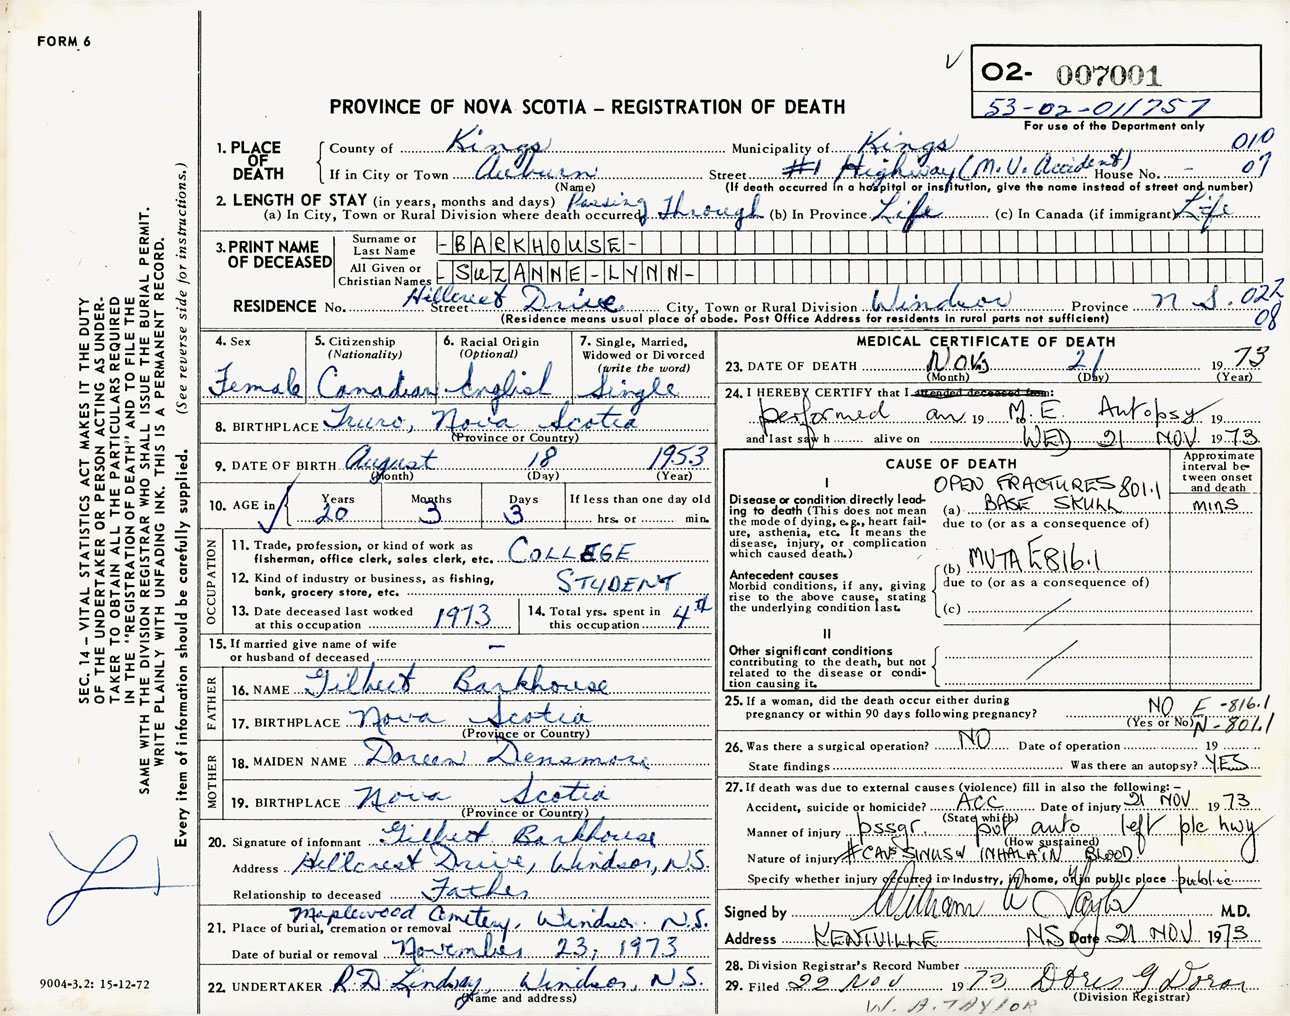 FORM 6
02- 007001
53-02-011757
For use of the Department only
PROVINCE OF NOVA SCOTIA – REGISTRATION OF DEATH
1. PLACE OF DEATH
County of Kings Municipality of Kings 010
If in City or Town Auburn Street #1 Highway (M.V. Accident) House No. - 07
(Name) (If death occurred in a hospital or institution, give the name instead of street and number)
2. LENGTH OF STAY (in years, months and days)
(a) In City, Town or Rural Division where death occurred Passing Through (b) In Province Life (c) In Canada (if immigrant) Life
3. PRINT NAME OF DECEASED
Surname or Last Name -BARKHOUSE-
All Given or Christian Names -SUZANNE-LYNN-
RESIDENCE No. Street Hillcrest Drive City, Town or Rural Division Windsor Province N.S. 022
(Residence means usual place of abode. Post Office Address for residents in rural parts not sufficient) 08
4. Sex
Female
5. Citizenship
(Nationality)
Canadian
6. Racial Origin
(Optional)
English
7. Single, Married,
Widowed or Divorced
(write the word)
Single
8. BIRTHPLACE Truro, Nova Scotia
(Province or Country)
9. DATE OF BIRTH August 18 1953
(Month) (Day) (Year)
10. AGE in Years 20 Months 3 Days 3
If less than one day old
hrs. or min.
OCCUPATION
11. Trade, profession, or kind of work as
fisherman, office clerk, sales clerk, etc. COLLEGE
12. Kind of industry or business, as fishing,
bank, grocery store, etc. STUDENT
13. Date deceased last worked
at this occupation 1973
14. Total yrs. spent in
this occupation 4th
15. If married give name of wife
or husband of deceased -
FATHER
16. NAME Gilbert Barkhouse
17. BIRTHPLACE Nova Scotia
(Province or Country)
MOTHER
18. MAIDEN NAME Doreen Densmore
19. BIRTHPLACE Nova Scotia
(Province or Country)
20. Signature of informant Gilbert Barkhouse
Address Hillcrest Drive, Windsor, N.S.
Relationship to deceased Father
21. Place of burial, cremation or removal Maplewood Cemetery, Windsor N.S.
Date of burial or removal November 23, 1973
22. UNDERTAKER R.D. Lindsay, Windsor, N.S.
(Name and address)
MEDICAL CERTIFICATE OF DEATH
23. DATE OF DEATH NOV. 21 1973
(Month) (Day) (Year)
24. I HEREBY CERTIFY that I attended deceased from:
performed an 19 to M.E. Autopsy 19
and last saw h alive on WED 21 NOV 1973
CAUSE OF DEATH
Approximate interval between onset and death
I
Disease or condition directly leading to death (This does not mean the mode of dying, e.g., heart failure, asthenia, etc. It means the disease, injury, or complication which caused death.)
OPEN FRACTURES 801.1
(a) BASE SKULL mins
due to (or as a consequence of)
Antecedent causes
Morbid conditions, if any, giving rise to the above cause, stating the underlying condition last.
(b) MVTA E816.1
due to (or as a consequence of)
(c)
II
Other significant conditions
contributing to the death, but not related to the disease or condition causing it.
25. If a woman, did the death occur either during
pregnancy or within 90 days following pregnancy? NO E-816.1
(Yes or No) N-801.1
26. Was there a surgical operation? NO Date of operation 19
State findings Was there an autopsy? YES
27. If death was due to external causes (violence) fill in also the following:-
Accident, suicide or homicide? ACC Date of injury 21 NOV 1973
(State which)
Manner of injury pssgr. pvt auto left plc hwy
(How sustained)
Nature of injury INHALA'IN BLOOD.
Specify whether injury occurred in Industry, in home, or in public place public
Signed by William A Taylor M.D.
Address KENTVILLE NS Date 21 NOV 1973
28. Division Registrar's Record Number
29. Filed 22 NOV 1973 Doris G Doran
(Division Registrar)
W. A. TAYLOR
SEC. 14 – VITAL STATISTICS ACT MAKES IT THE DUTY
OF THE UNDERTAKER OR PERSON ACTING AS UNDER-
TAKER TO OBTAIN ALL THE PARTICULARS REQUIRED
IN THE "REGISTRATION OF DEATH" AND TO FILE THE
SAME WITH THE DIVISION REGISTRAR WHO SHALL ISSUE THE BURIAL PERMIT.
WRITE PLAINLY WITH UNFADING INK. THIS IS A PERMANENT RECORD.
Every item of information should be carefully supplied. (See reverse side for instructions.)
9004-3.2: 15-12-72